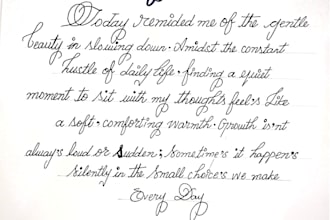 Today remided me of the gentle
beauty in slowing down. Amidst the constant
hustle of daily life. finding a quiet
moment to sit with my thoughts feels like
a soft. comforting warmth. Growth isn't
always loud or sudden; sometimes it happens
silently in the small choices we make
Every Day